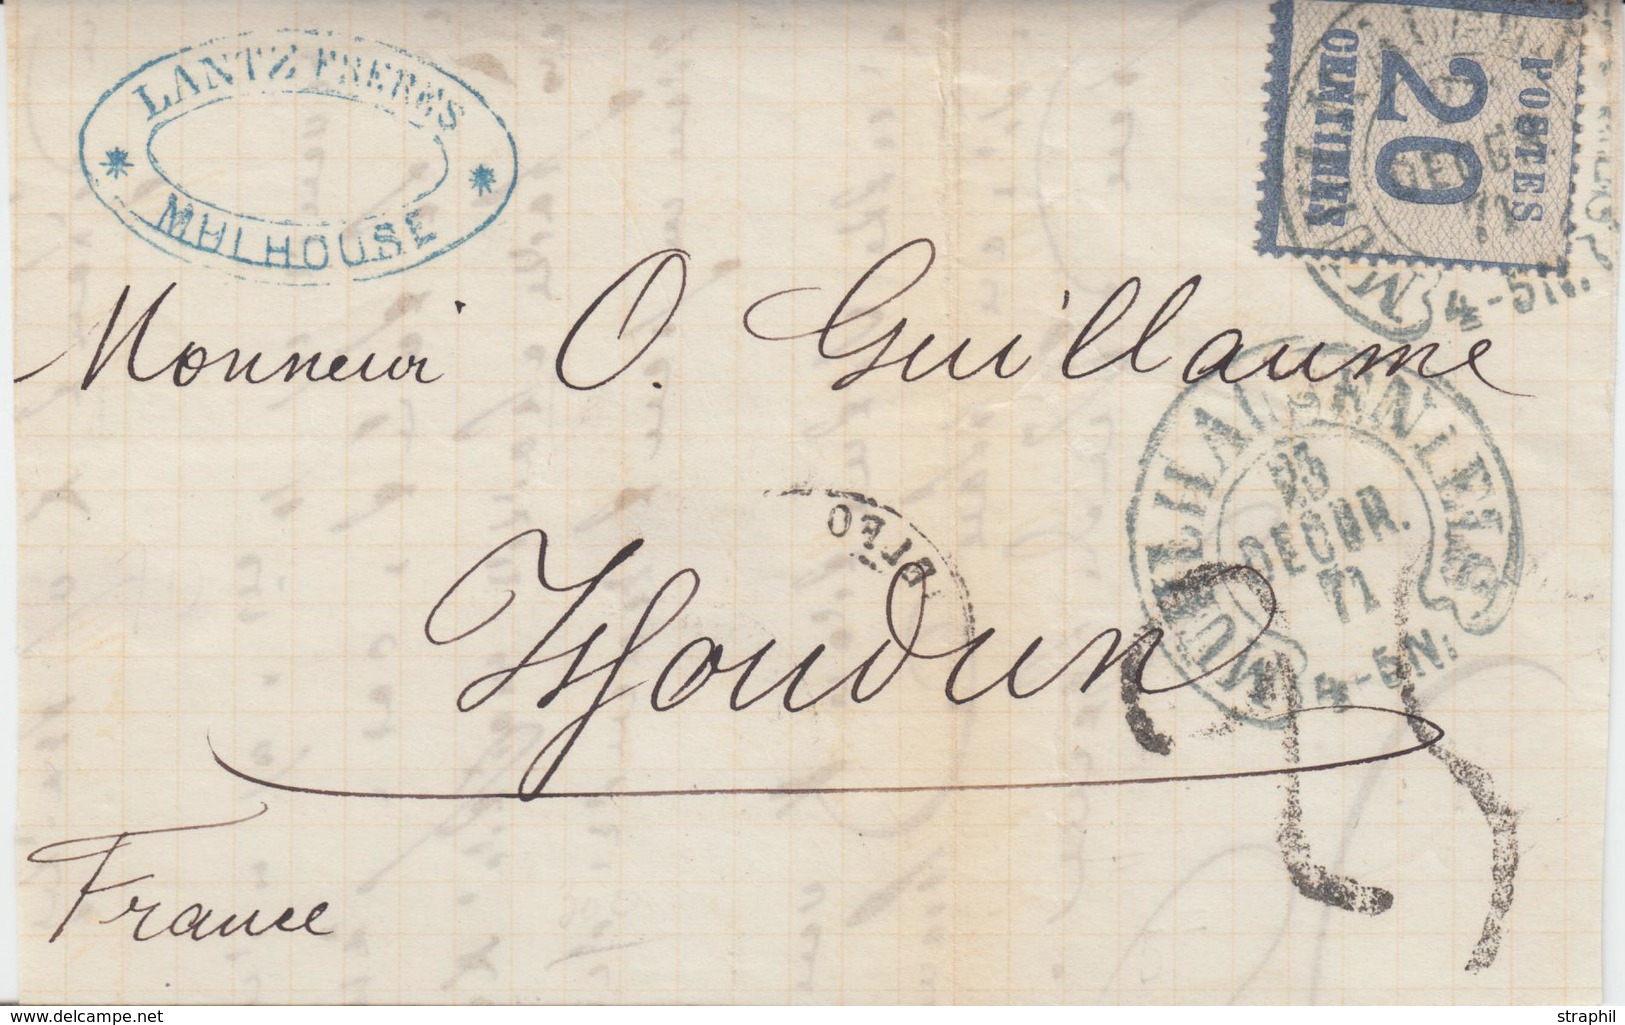 LANTZ FRERES
MULHOUSE
POSTES
20
CENTIMES
4-5N.
Monsieur O. Guillaume
MÜLHAUSEN I ELSASS
25
DECBR.
71
4-5N.
Issoudun
25
France
www.delcampe.net
straphil